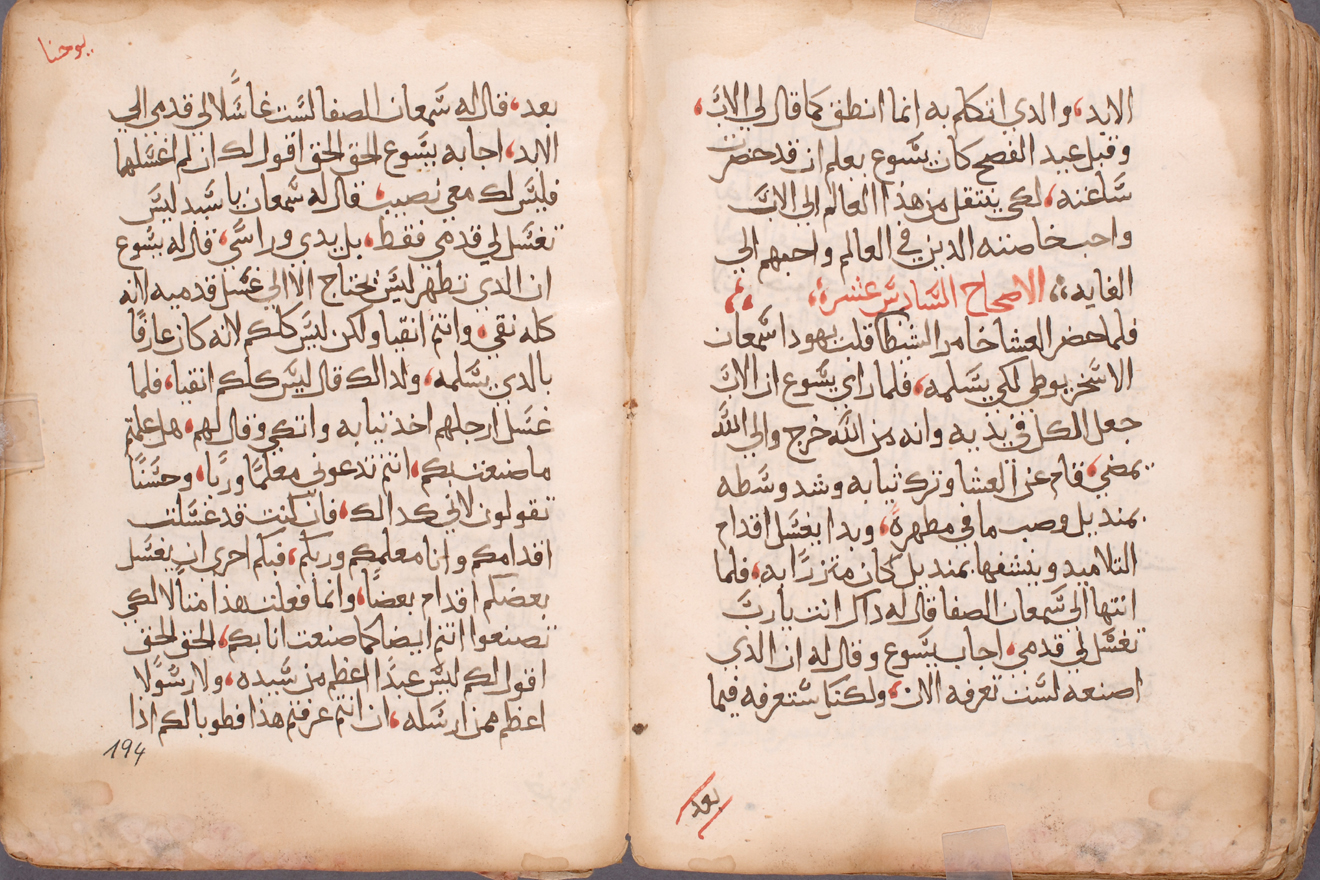 الابد، والدي اتكلم به انما انطق كما قال لي الاب،
وقبل عيد الفصح كان يسوع يعلم ان قد حضرت
ساعته، لكي ينتقل من هذا العالم الي الاب
واحب خاصته الدين في العالم واحبهم الي
الغايه، الاصحاح السادس عشر،
فلما حضر العشا خامر الشيطا قلب يهودا شمعان
الاسخريوطي لكي يسلمه، فلما راي يسوع ان الاب
جعل الكل في يديه وانه من الله خرج والي الله
يمضي، قام عن العشا وترك ثيابه وشد وسطه
بمنديل وصب ما في مطهرة، وبدا بغسل اقدام
التلاميد وينشفها بمنديل كان متزرًا به، فلما
انتها الي شمعان الصفا قال له داك انت يا رب
تغسل لي قدمي، اجاب يسوع وقال له ان الدي
اصنعه لست تعرفه الان، ولكنك ستعرفه فيما
بعد
يوحنا
بعد، قال له شمعان الصفا لست غاسًلا لي قدمي الي
الابد، اجابه يسوع الحق الحق اقول لك ان لم اغسلهما
فليس لك معي نصيب، قال له شمعان يا سيد ليس
تغسل لي قدمي فقط، بل يدي وراسي، قال له يسوع
ان الدي تطهر ليس يحتاج الا الي غسل قدميه لانه
كله نقي، وانتم انقيا ولكن ليس كلكم لانه كان عارفًا
بالدي يسلمه، ولدالك قال ليس كلكم انقيا، فلما
غسل ارجلهم اخد ثيابه واتكي وقال لهم، هل علمتم
ما صنعت بكم، انتم تدعوني معلمًا وربًا، وحسنًا
تقولون لاني كدالك، فان كنت قد غسلت
اقدامكم وانا معلمكم وربكم، فبكم احري ان يغسل
بعضكم اقدام بعضًا، وانما فعلت هذا مثالًا لكي
تصنعوا انتم ايضا كما صنعت انا بكم، الحق الحق
اقول لكم ليس عبدًا اعظم من سيده، ولا رسولًا
اعظم ممن ارسله، ان انتم عرفتم هذا فطوبا لكم اذا
194